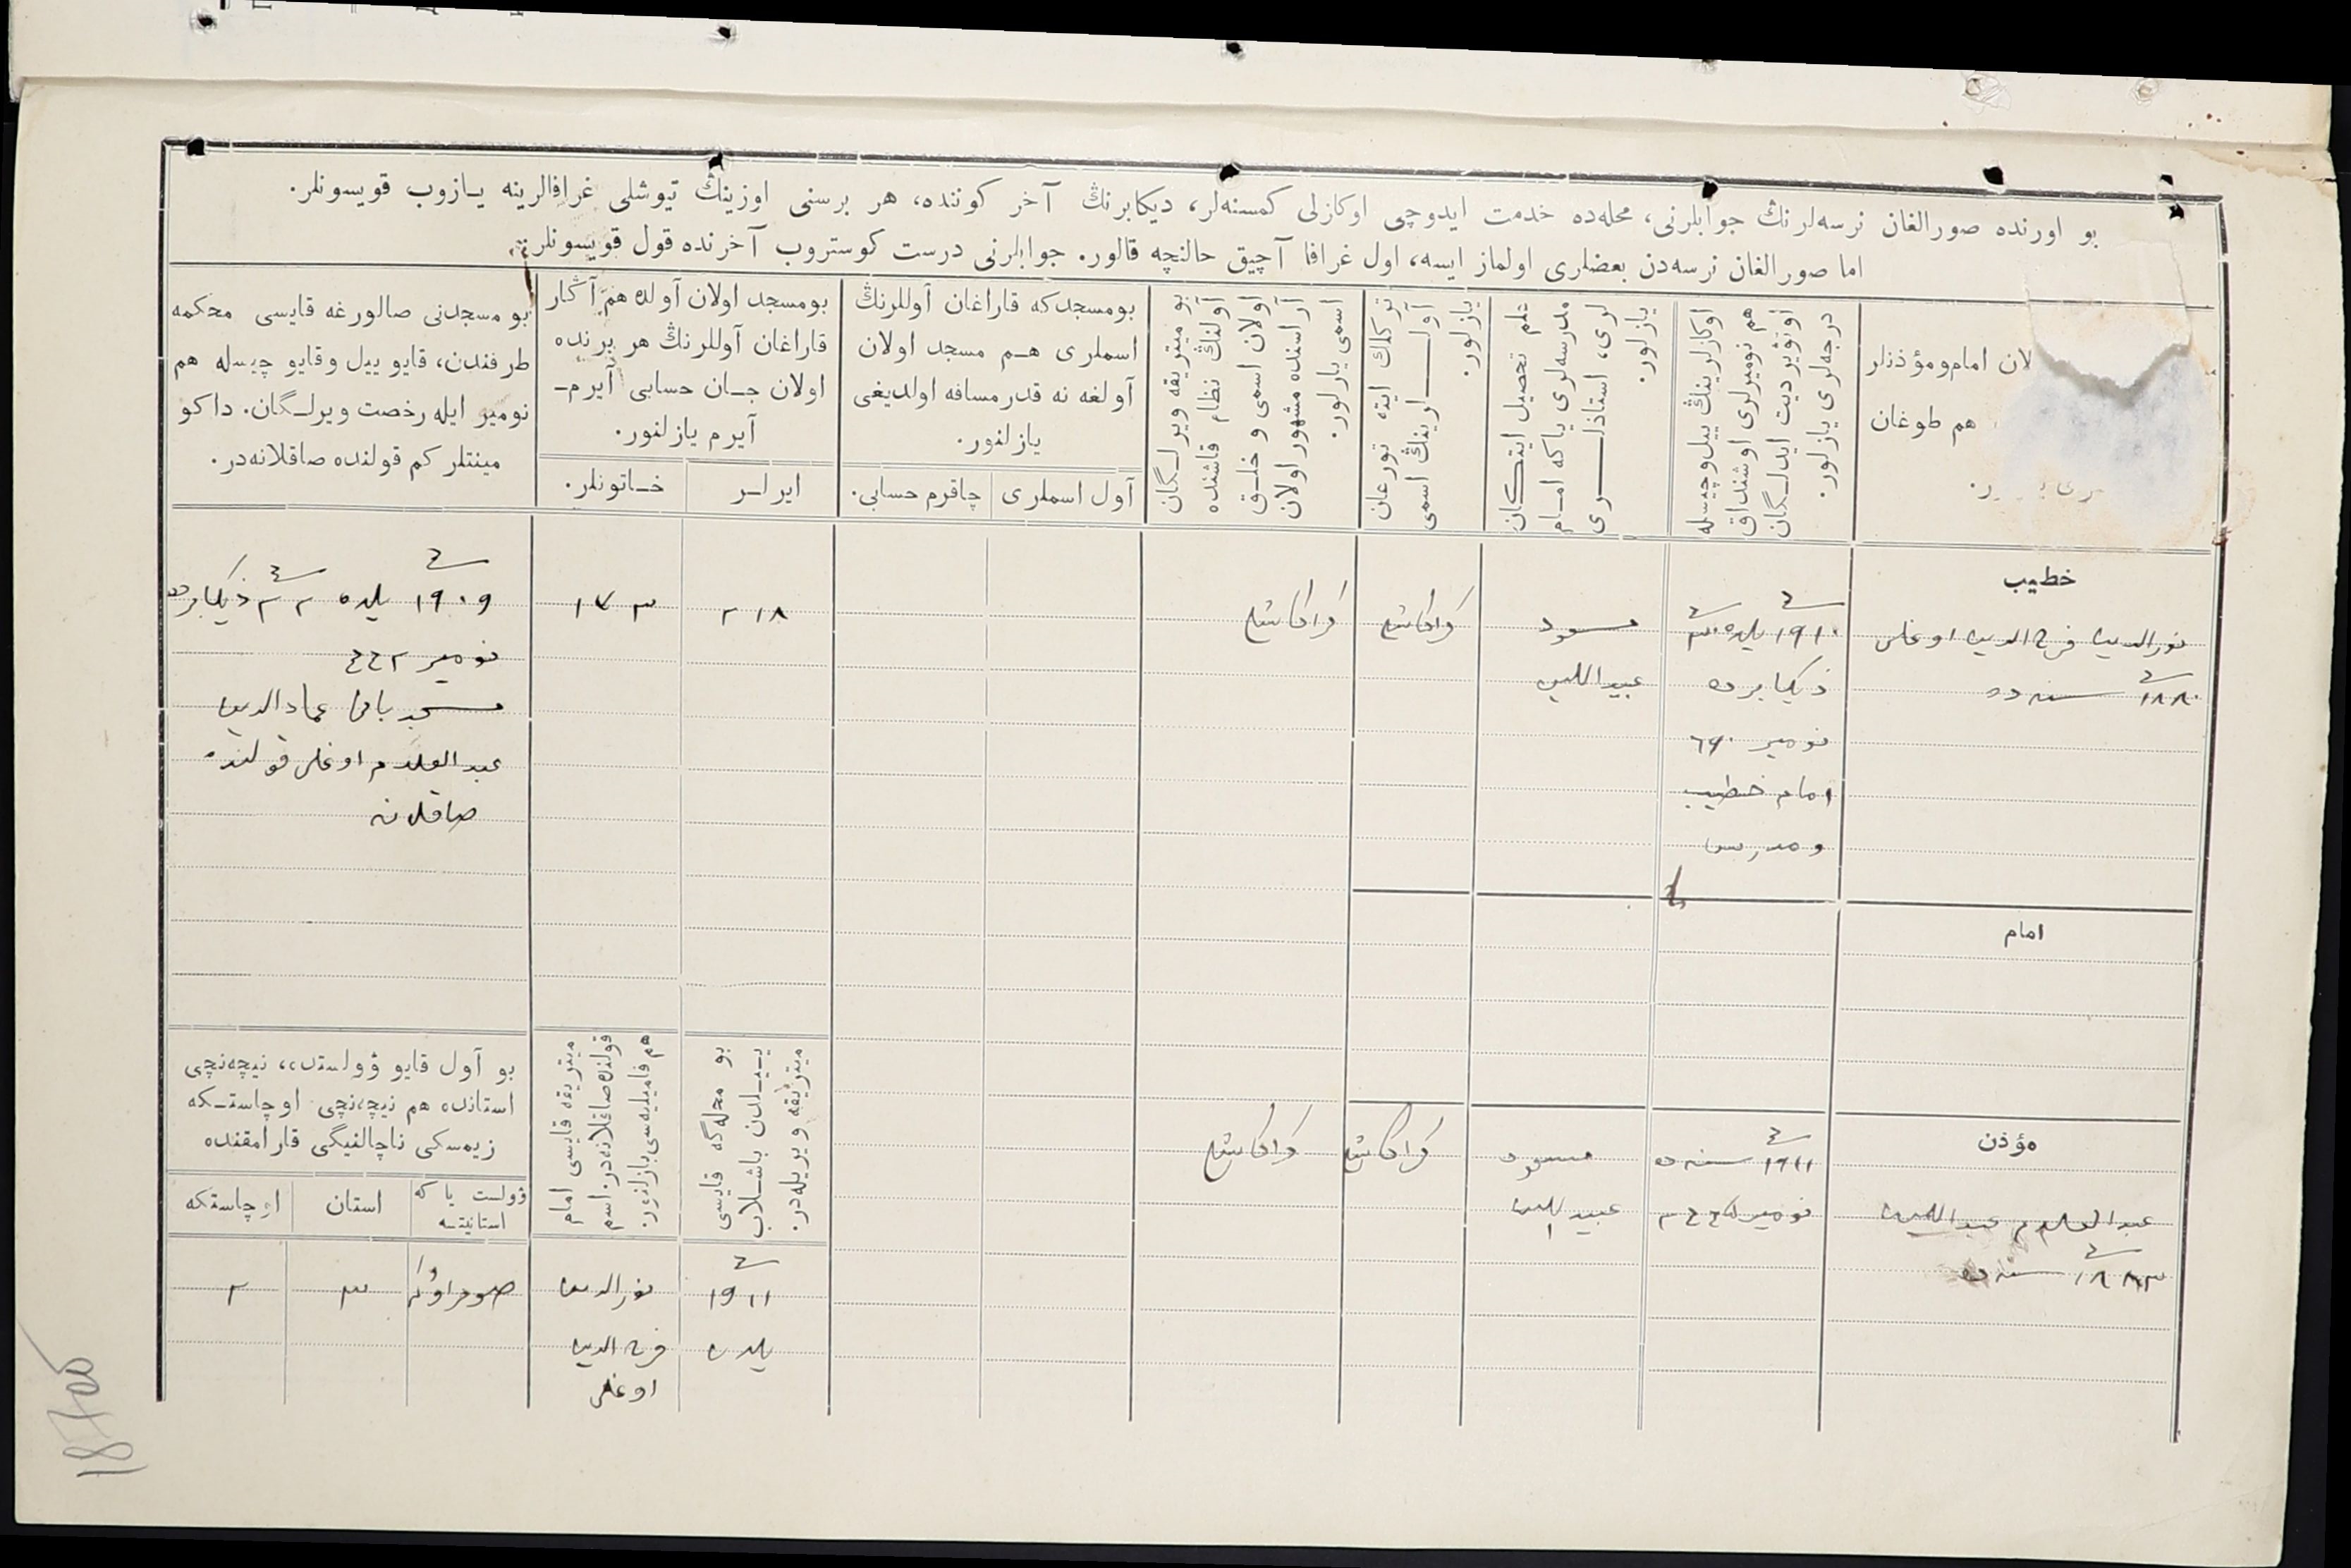 بو اورنده صورالغان نرسه‌لرنڭ جوابلرنی، محله‌ده خدمت ایدوچی اوكازلی كمسنه‌لر، دیكابرنڭ آخر كوننده، هر برسنی اوزینڭ تیوشلی غرافالرینه یـازوب قویسونلر.
اما صورالغان نرسه‌دن بعضلری اولماز ایسه، اول غرافا آچیق حالنچه قالور. جوابلرنی درست كوستروب آخرنده قول قویسونلر.
لان امام‌ومؤذنلر
هم طوغان
اوكازلرینڭ ییل‌وچیسله
هم نومیرلری اوشنداق
اوتؤیردیت ایدلـگان
درجه‌لری یازلور.
علم تحصیل ایتـكان
مدرسه‌لری یاكه امـام
لری، استاذلــــری
یازلور.
تركلك ایته تورغان
آولــــلرینڭ اسمی
یازلور.
بو میتریقه ویرلـگان
آولنڭ نظام قاشنده
اولان اسمی و خلـق
آراسنده مشهور اولان
اسمی یازلور.
بومسجدكه قاراغان آوللرنڭ
اسملری هـم مسجد اولان
آولغه نه قدر مسافه اولدیغی
یازلنور.
آول اسملری
چاقرم حسابی.
بومسجد اولان آولده هم آڭار
قاراغان آوللرنڭ هر برنده
اولان جـان حسابی آیرم-
آیرم یازلنور.
ایرلـر
خـاتونلر.
بو مسجدنی صالورغه قایسی محكمه
طرفندن، قایو ییل وقایو چیسله هم
نومیر ایله رخصت ویرلـگان. داكو
مینتلر كم قولنده صاقلانه‌در.
خطیب
نورالدین فرح الدین اوغلی
١٨٨٠ سنه ده
١٩١٠ یلده ٣٠
ذیكابرده
نومیر ٦٩٠
امام خطیب
و مدرس
مسعود
عبیداللین
٢١٨
١٧٣
١٩٠٩ یلده ٢٢ ذیكابرده
نومیر
مسجد باقی عمادالدین
عبدالعلام اوغلی قولنده
صاقلانه
امام
مؤذن
عبدالعلام عبداللین
١٨٨٣ سنه ده
١٩١١ سنه ده
نومیر
مسعود
عبیداللین
بو محله‌كه قایسی
ییـلدن باشـلاب
میتریقه ویریله‌در.
میتریقه قایسی امام
قولنده صاقلانه‌در. اسم
هم فامیلیه‌سی یازلنور.
بو آول قایو ۋولستده، نیچه‌نچی
استانده هم نیچه‌نچی اوچاستـكه
زیمسكی ناچالنیگی قارامقنده
ۋولست یا كه
استانیتسه
استان
اوچاستكه
١٩١١
یلدن
نورالدین
فرح الدین
اوغلی
٣
٢